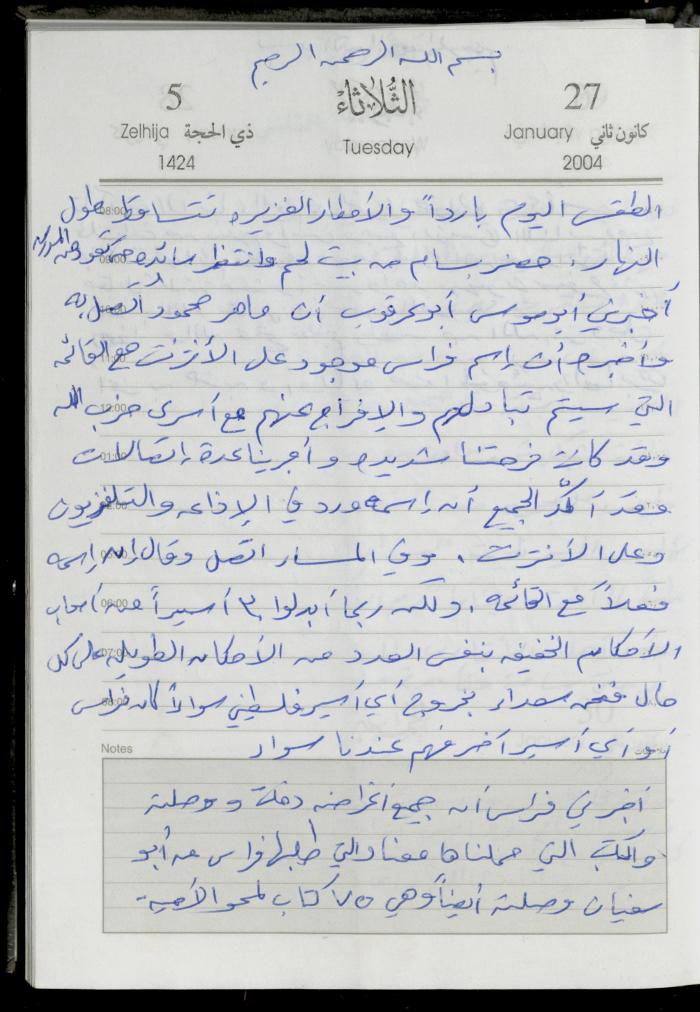 بسم الله الرحمن الرحيم
5 الثلاثاء 27
Zelhija ذي الحجة Tuesday January كانون ثاني
1424 2004
الطقس اليوم بارداً والأمطار الغزيره تتساقط طول
النهار. حضر بسام من بيت لحم وانتظر سائده حتى تعود من المدرسة
أخبرني أبو موسى أبو عرقوب أن ماهر محمود اُتصل به
وأخبره أن إسم فراس موجود على الأنترنت مع القائمه
التي سيتم تبادلهم والإفراج عنهم مع أسرى حزب الله
وقد كانت فرحتنا شديده وأجرينا عدة إتصالات
وقد أكّد الجميع أن إسمه ورد في الإذاعه والتلفزيون
وعلى الأنترنت. وفي المساء اتصل وقال إن إسمه
فعلاً مع القائمه، ولكن ربما أبدلوا ٣٠ أسيراً من أصحاب
الأحكام الخفيفه بنفس العدد من الأحكام الطويله على كل
حال فنحن سعداء بخروج أي أسير فلسطيني سواءاً كان فراس
أو أي أسير آخر فهم عندنا سواء
Notes
أخبرني فراس أن جميع أغراضه دخلت ووصلته
والكتب التي حملناها معنا والتي طلبها فراس من أبو
سفيان وصلته أيضاً وهي ٧٥ كتاب لمحو الأمية.
08:00
09:00
11:00
12:00
01:00
06:00
07:00